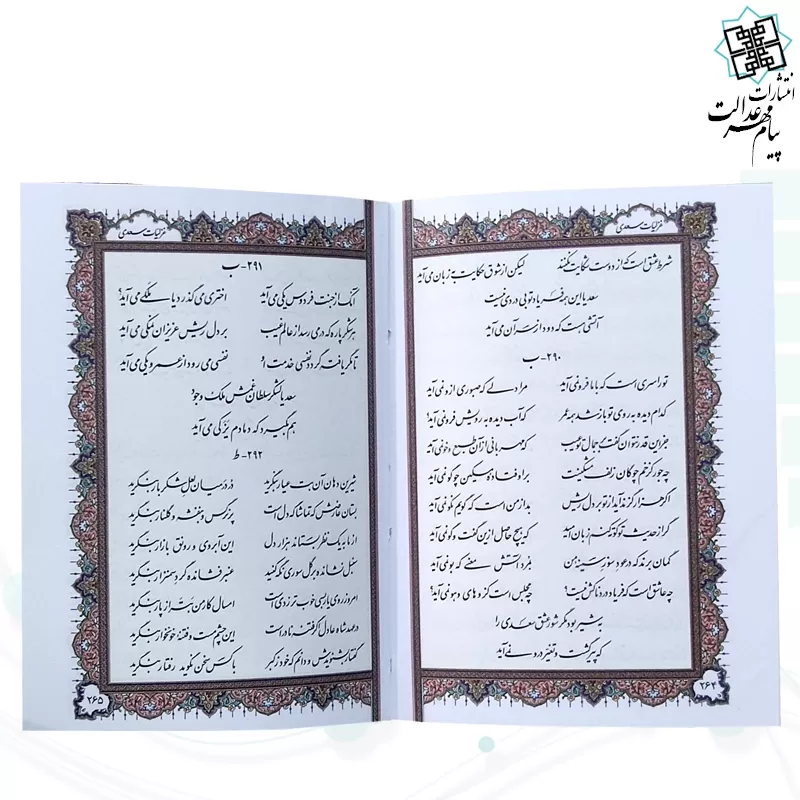 انتشارات
پیام مهر عدالت
غزلیات سعدی
شرط عشق است که از دوست شکایت نکنند لیکن از شوق حکایت به زبان می‌آید
سعدیا این همه فریاد تو بی دردی نیست
آتشی هست که دود از سر آن می‌آید
۲۹۰-ب
تو را سری است که با ما فرو نمی‌آید مرا دلی که صبوری از او نمی‌آید
کدام دیده به روی تو باز شد همه عمر که آب دیده به رویش فرو نمی‌آید؟
جز این قدر نتوان گفت بر جمال تو عیب که مهربانی از آن طبع و خو نمی‌آید
چه جور کز خم چوگان زلف مشکینت بر اوفتاده مسکین چو گو نمی‌آید
اگر هزار گزند آید از تو بر دل ریش بد از من است که گویم نکو نمی‌آید
گر از حدیث تو کوته کنم زبان امید که هیچ حاصل از این گفت و گو نمی‌آید
گمان برند که در عود سوز سینه من بمرد آتش معنی که بو نمی‌آید
چه عاشق است که فریاد دردناکش نیست؟ چه مجلس است کز او های و هو نمی‌آید
به شیر بود مگر شور عشق سعدی را
که پیر گشت و تغیر در او نمی‌آید
۲۶۴
غزلیات سعدی
۲۹۱-ب
آنک از جنت فردوس یکی می‌آید اختری می‌گذرد یا ملکی می‌آید؟
هر شکرپاره که در می‌رسد از عالم غیب بر دل ریش عزیزان نمکی می‌آید
تا مگر یافته گردد نفسی خدمت او نفسی می‌رود از عمر و یکی می‌آید
سعدیا لشکر سلطان غمش ملک وجود
هم بگیرد که دمادم یزکی می‌آید
۲۹۲-ط
شیرین دهان آن بت عیار بنگرید در در میان لعل شکربار بنگرید
بستان عارضش که تماشاگه دل است پر نرگس و بنفشه و گلنار بنگرید
از ما به یک نظر بستاند هزار دل این آبروی و رونق بازار بنگرید
سنبل نشانده بر گل سوری نگه کنید عنبر فشانده گرد سمنزار بنگرید
امروز روی یار بسی خوب‌تر ز دی است امسال کار من بتر از پار بنگرید
در عهد شاه عادل اگر فتنه نادر است این چشم مست و فتنه خونخوار بنگرید
گفتار بشنویدش و دانم که خود ز کبر با کس سخن نگوید رفتار بنگرید
۲۶۵